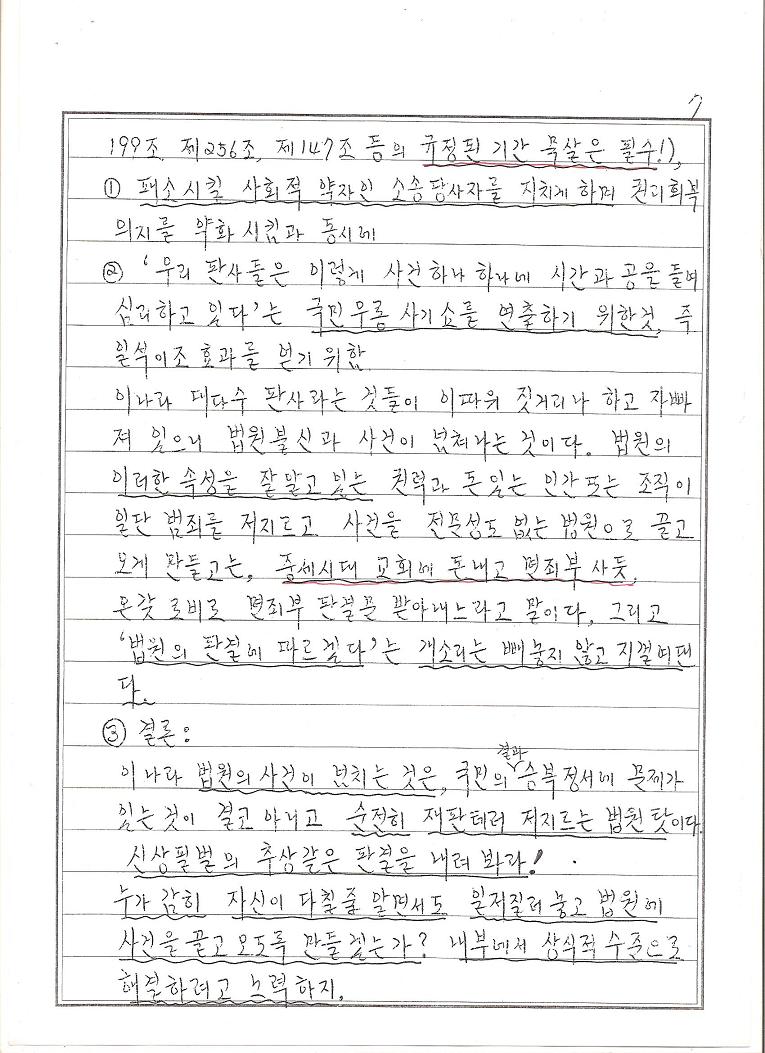 7
199조, 제256조, 제147조 등의 규정된 기간 묵살은 필수!),
① 패소시킬 사회적 약자인 소송당사자를 지치게 하며 권리회복
의지를 약화시킴과 동시에
② '우리 판사들은 이렇게 사건하나 하나에 시간과 공을 들여
심리하고 있다'는 국민우롱 사기쇼를 연출하기 위한것, 즉
일석이조 효과를 얻기 위함
이나라 대다수 판사라는 것들이 이따위 짓거리나 하고 자빠
져 있으니 법원불신과 사건이 넘쳐나는 것이다. 법원의
이러한 속성을 잘 알고 있는 권력과 돈있는 인간 또는 조직이
일단 범죄를 저지르고 사건을 전문성도 없는 법원으로 끌고
오게 만들고는, 중세시대 교회에 돈내고 면죄부 사듯,
온갖 로비로 면죄부 판결문 받아내느라고 말이다, 그리고
'법원의 판결에 따르겠다'는 개소리는 빼놓지 않고 지껄여댄
다.
③ 결론:
이 나라 법원의 사건이 넘치는 것은, 국민의 결과 승복정서에 문제가
있는 것이 결코 아니고 순전히 재판테러 저지르는 법원 탓이다.
신상필벌의 추상같은 판결을 내려 봐라!
누가 감히 자신이 다칠줄 알면서도 일저질러 놓고 법원에
사건을 끌고 오도록 만들겠는가? 내부에서 상식적 수준으로
해결하려고 노력하지.